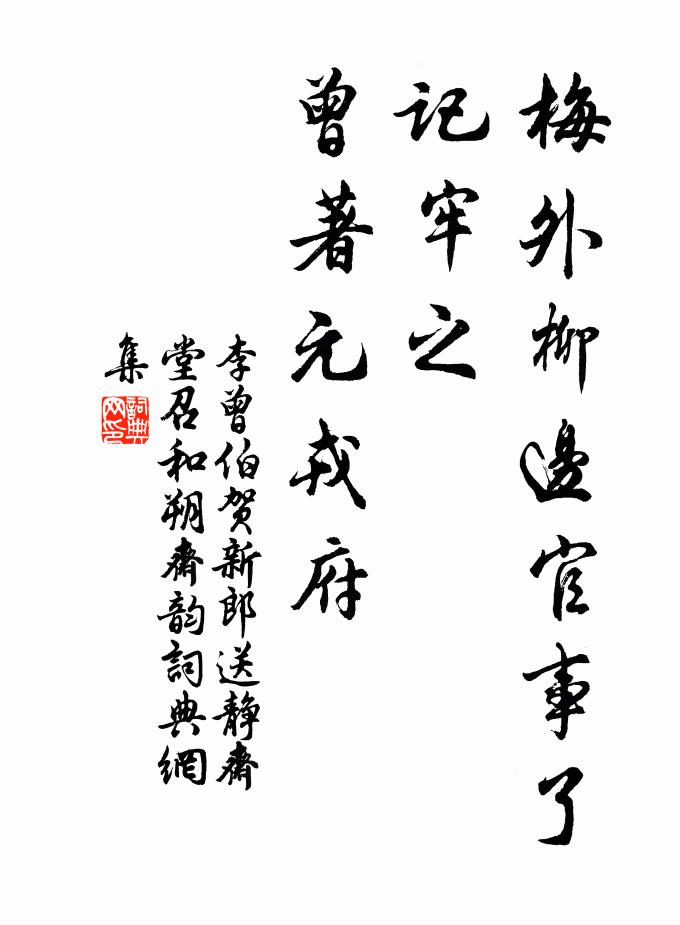 梅外柳邊官事了
記牢之
曾著元戎府
李曾伯贺新郎送静齋
堂召和朔齋韵詞典網
集
詞典
网印